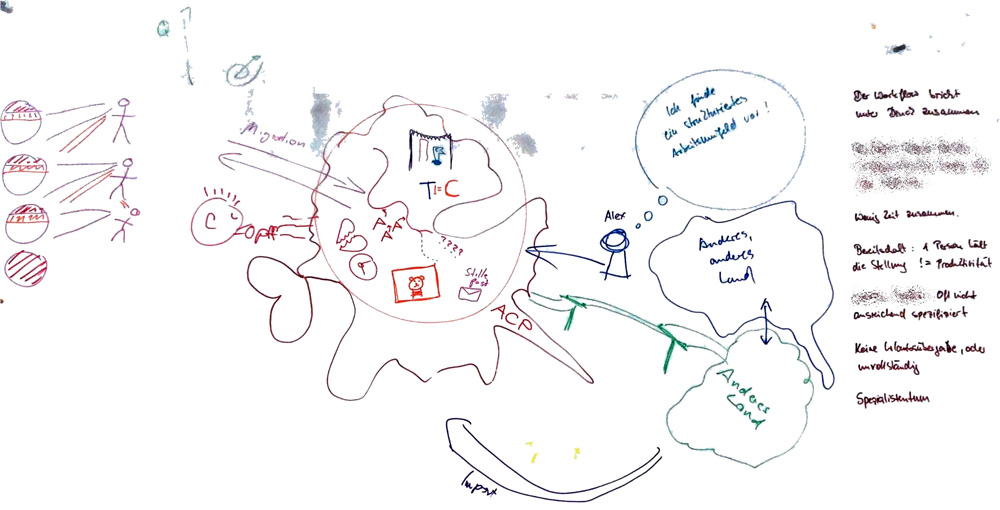 Q
Migration
T!=C
C
????
Stille
Post
ACP
Ich finde
ein strukturiertes
Arbeitsumfeld vor!
Alex
Anderes,
anderes
Land
Anderes
Land
Import
Der Workflow bricht
unter Druck zusammen
Wenig Zeit zusammen.
Bereitschaft: 1 Person hält
die Stellung != Produktivität
Oft nicht
ausreichend spezifiziert
Keine Urlaubsübergabe, oder
unvollständig
Spezialistentum